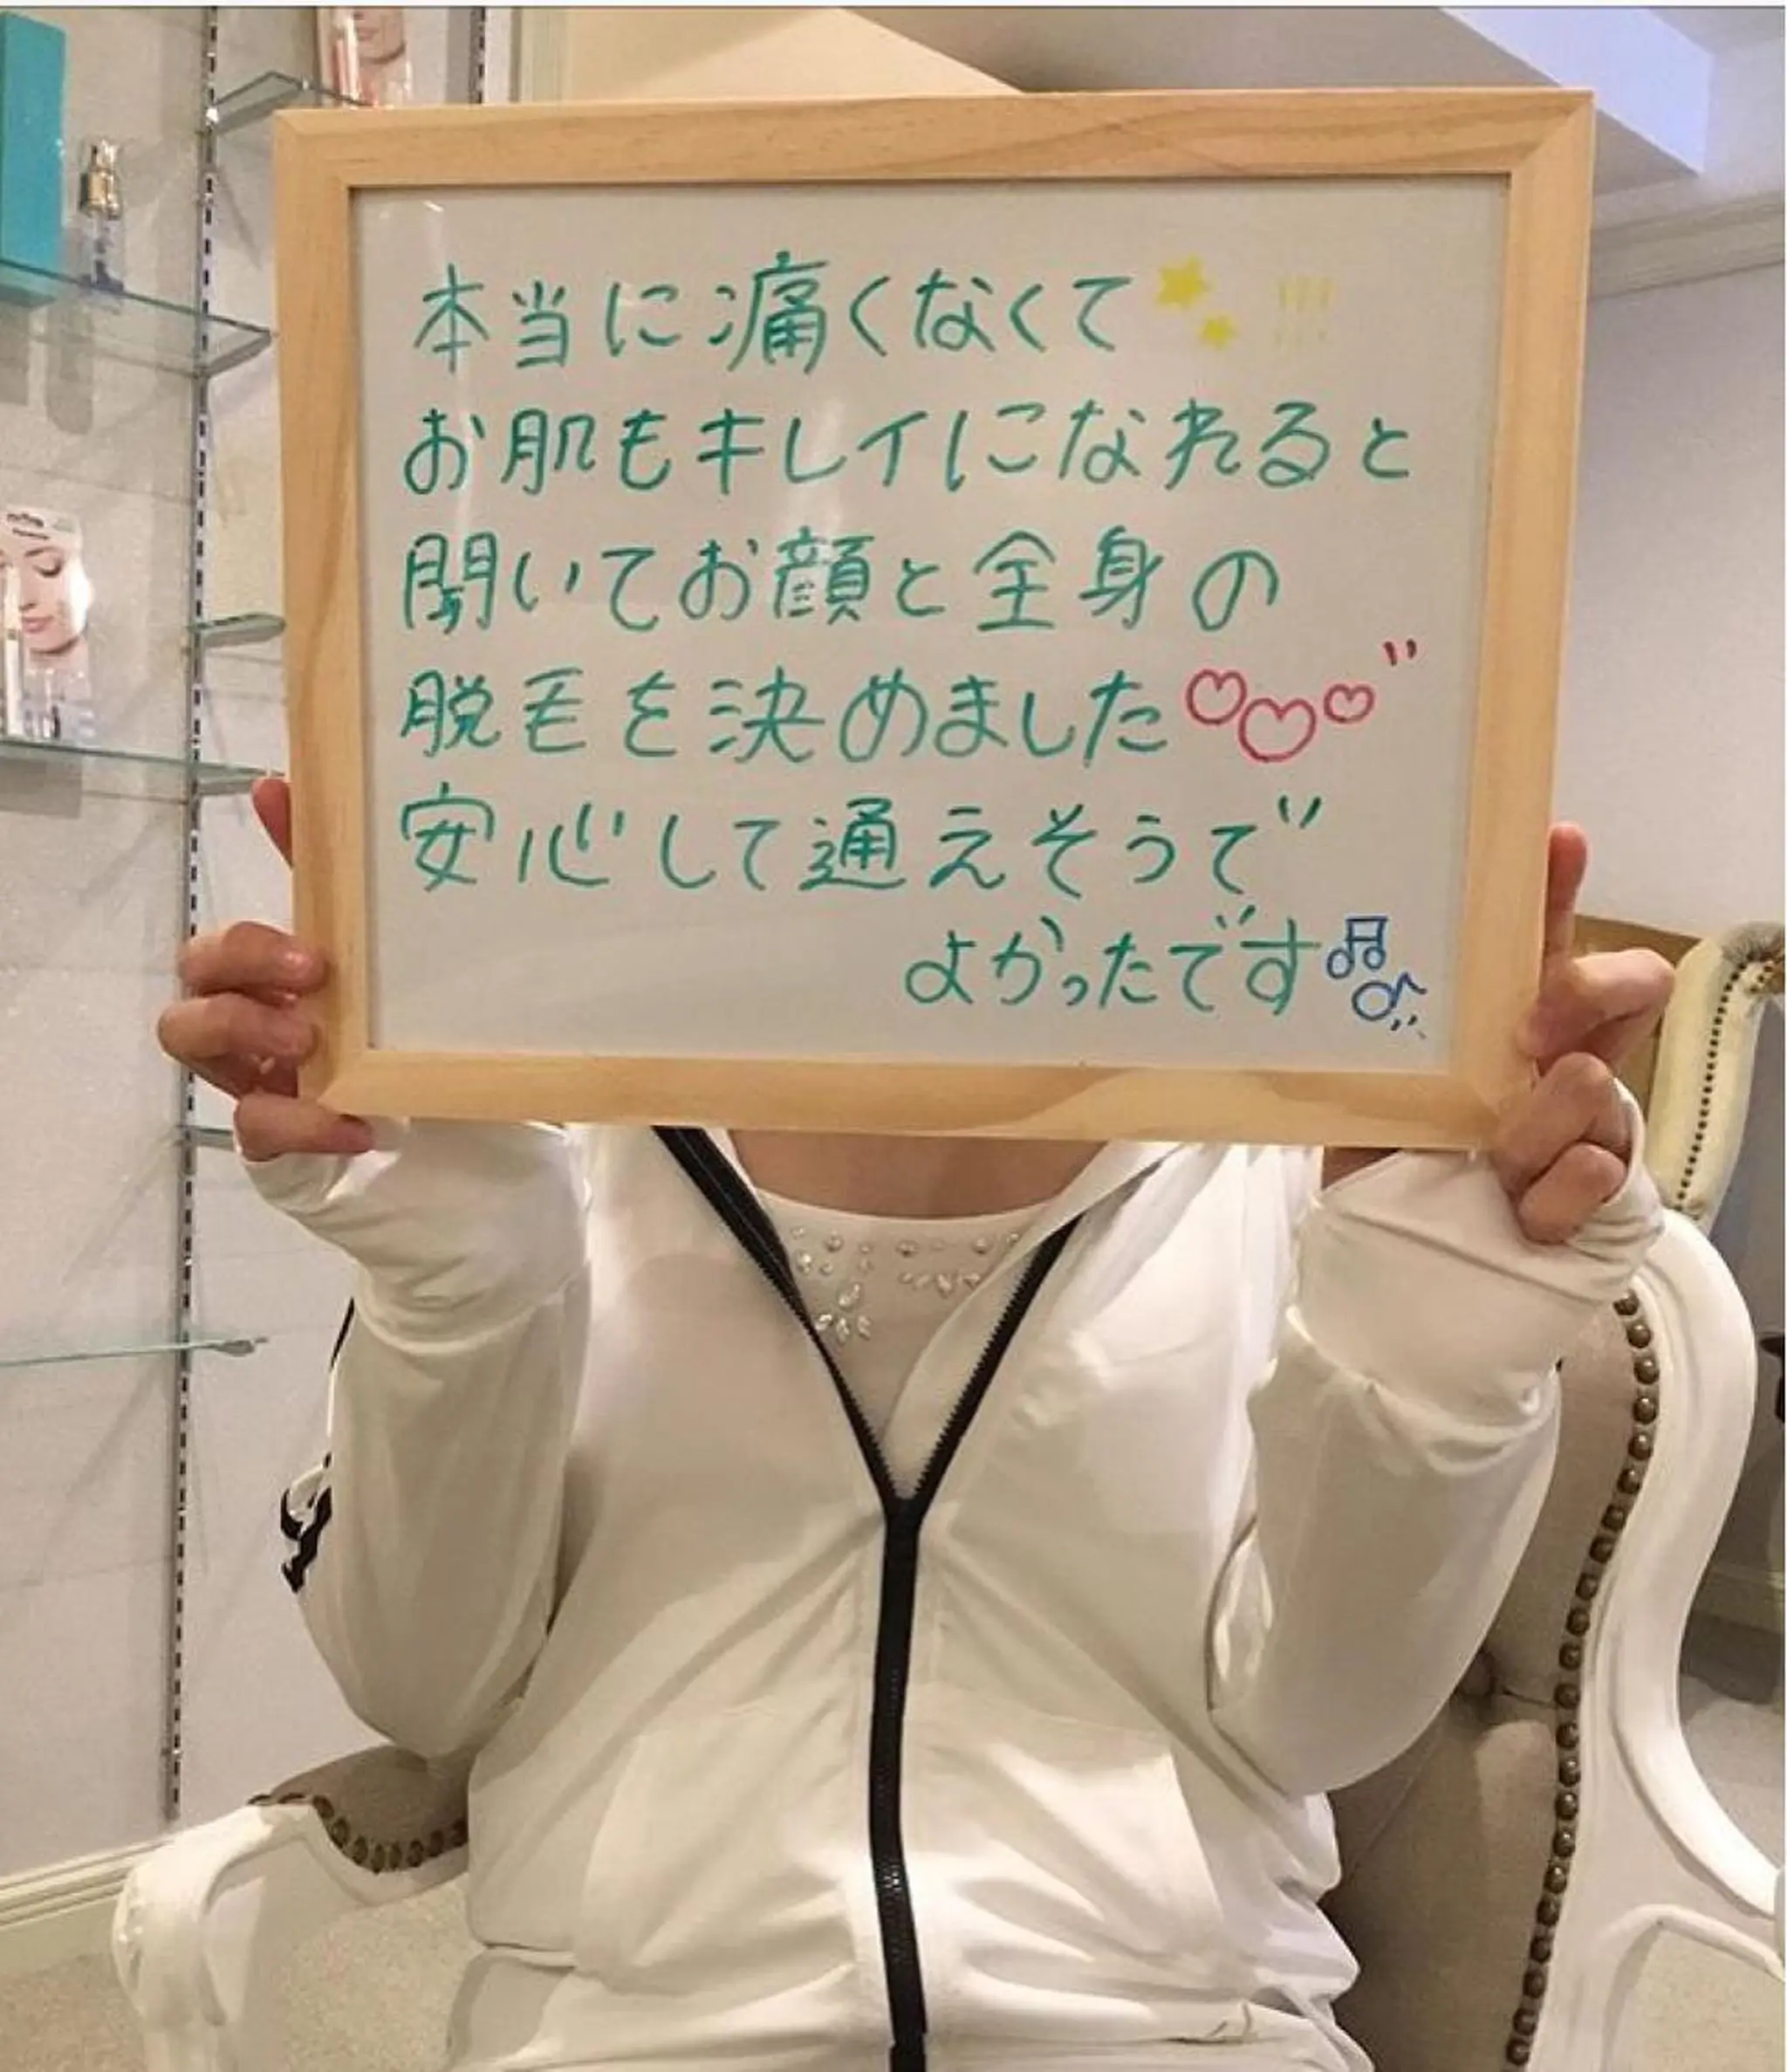 本当に痛くなくて
お肌もキレイになれると
聞いてお顔と全身の
脱毛を決めました
安心して通えそうで
よかったです